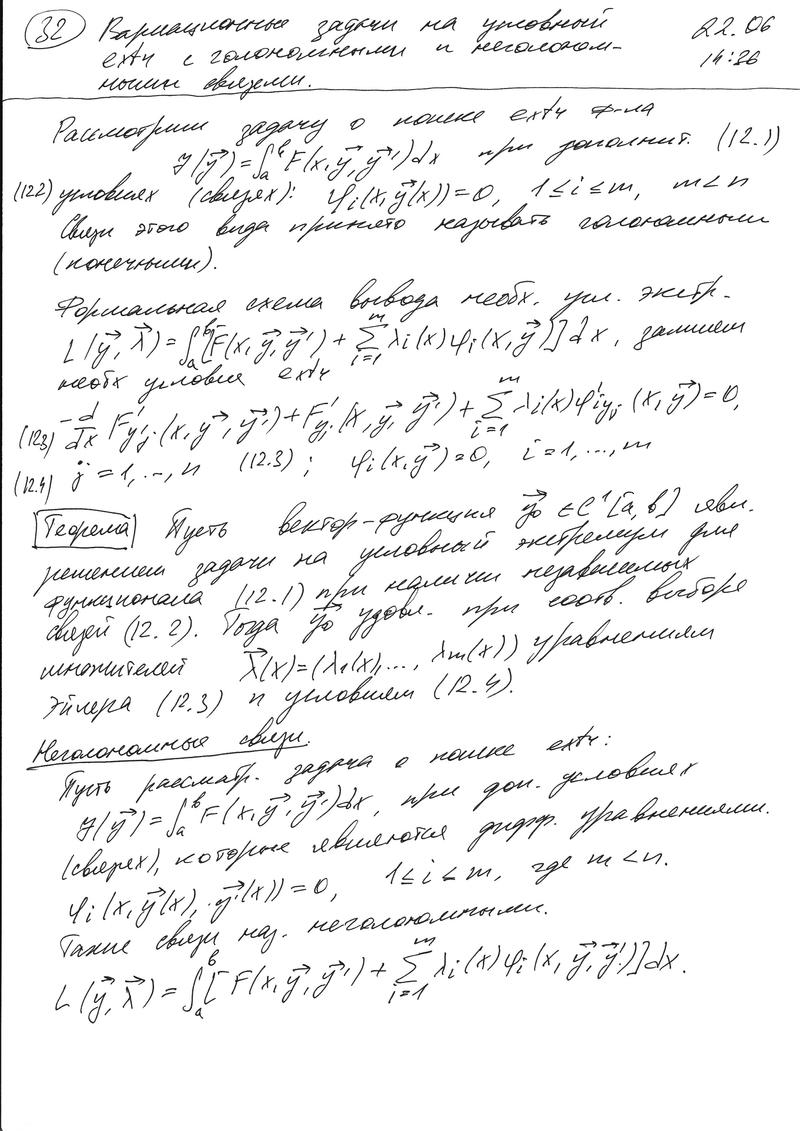 32 Вариационные задачи на условный 22.06
extr с голономными и неголоном- 14:36
ными связями.
Рассмотрим задачу о поиске extr ф-ла
J(y⃗) = ∫ₐᵇ F(x, y⃗, y⃗')dx при дополнит. (12.1)
(12.2) условиях (связях): φi(x, y⃗(x)) = 0, 1 ≤ i ≤ m, m < n
Связи этого вида принято называть голономными
(конечными).
Формальная схема вывода необх. усл. экстр.
L(y⃗, λ⃗) = ∫ₐᵇ [F(x, y⃗, y⃗') + Σ_{i=1}^{m} λi(x)φi(x, y⃗)]dx, запишем
необх условия extr
(12.3) -d/dx F'y'j(x, y⃗, y⃗') + F'yj(x, y⃗, y⃗') + Σ_{i=1}^{m} λi(x)φ'iyj(x, y⃗) = 0,
(12.4) j = 1, ..., n (12.3); φi(x, y⃗) = 0, i = 1, ..., m
Теорема Пусть вектор-функция y⃗₀ ∈ C¹[a, b] явл.
решением задачи на условный экстремум для
функционала (12.1) при наличии независимых
связей (12.2). Тогда y⃗₀ удовл. при соотв. выборе
множителей λ⃗(x) = (λ1(x), ..., λm(x)) уравнениям
Эйлера (12.3) и условиям (12.4).
Неголономные связи.
Пусть рассматр. задача о поиске extr:
J(y⃗) = ∫ₐᵇ F(x, y⃗, y⃗')dx, при доп. условиях
(связях), которые являются дифф. уравнениями.
φi(x, y⃗(x), y⃗'(x)) = 0, 1 ≤ i ≤ m, где m < n.
Такие связи наз. неголономными.
L(y⃗, λ⃗) = ∫ₐᵇ [F(x, y⃗, y⃗') + Σ_{i=1}^{m} λi(x)φi(x, y⃗, y⃗')]dx.